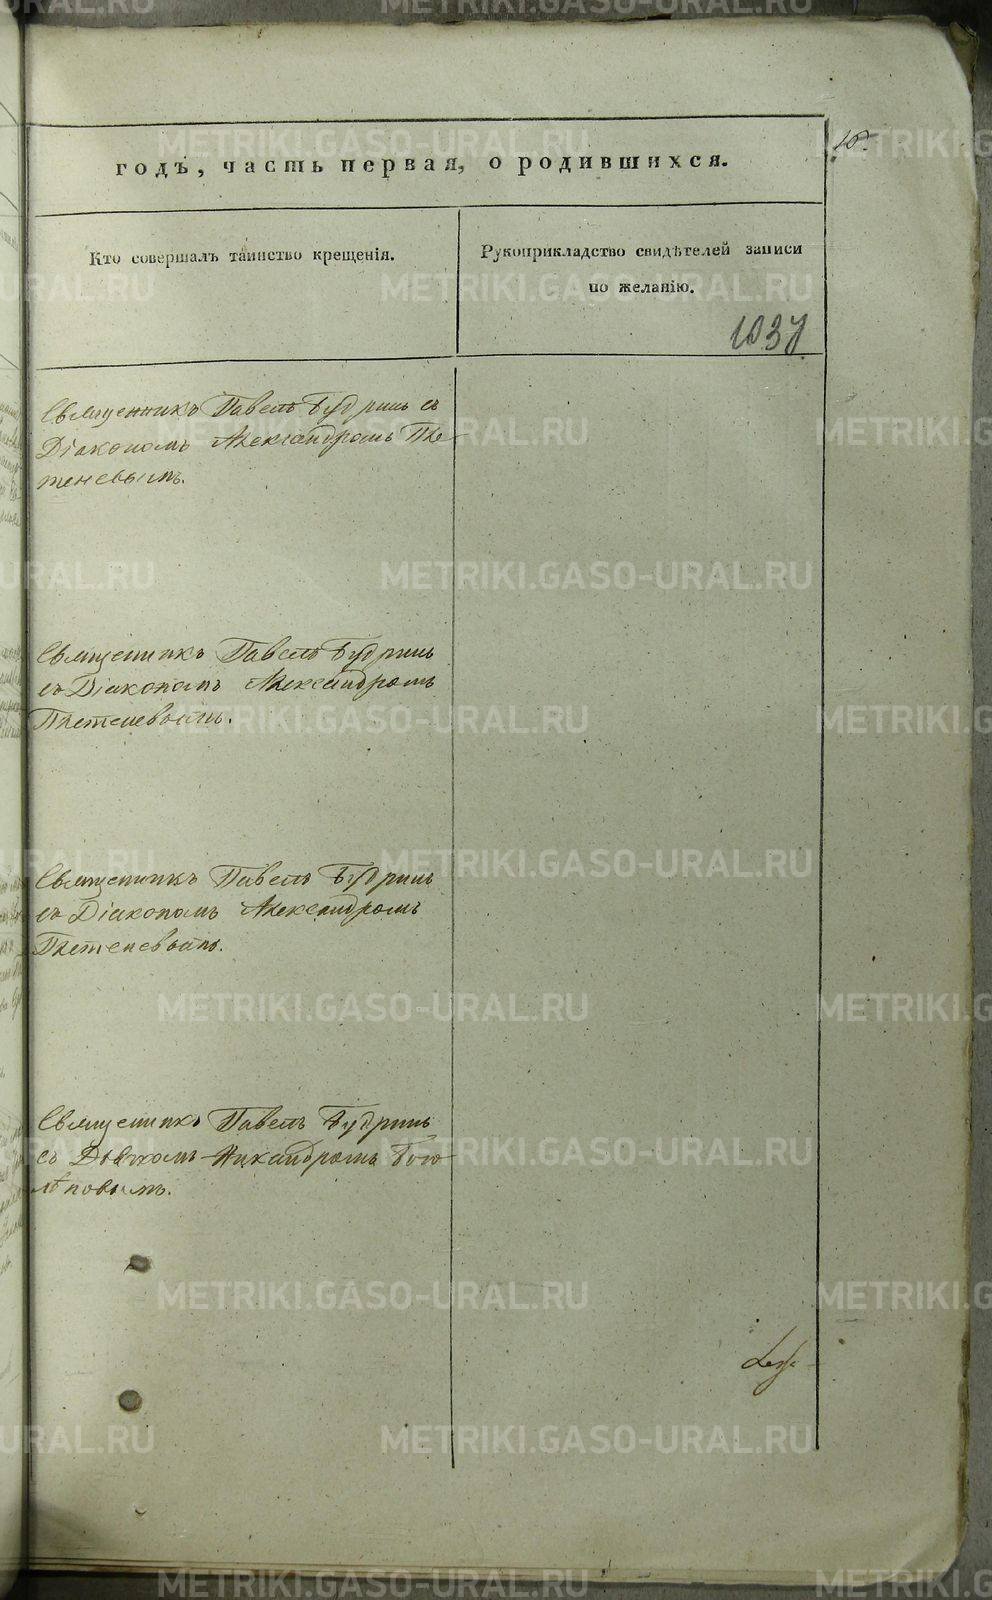 годъ, часть первая, о родившихся.
Кто совершалъ таинство крещенія.
Рукоприкладство свидѣтелей записи
по желанію.
1037
Священникъ Павелъ Будринъ съ
Діакономъ Александромъ Пле-
теневымъ.
Священникъ Павелъ Будринъ
съ Діакономъ Александромъ
Плетеневымъ.
Священникъ Павелъ Будринъ
съ Діакономъ Александромъ
Плетеневымъ.
Священникъ Павелъ Будринъ
съ Дьячкомъ Никандромъ Бого-
лѣповымъ.
METRIKI.GASO-URAL.RU